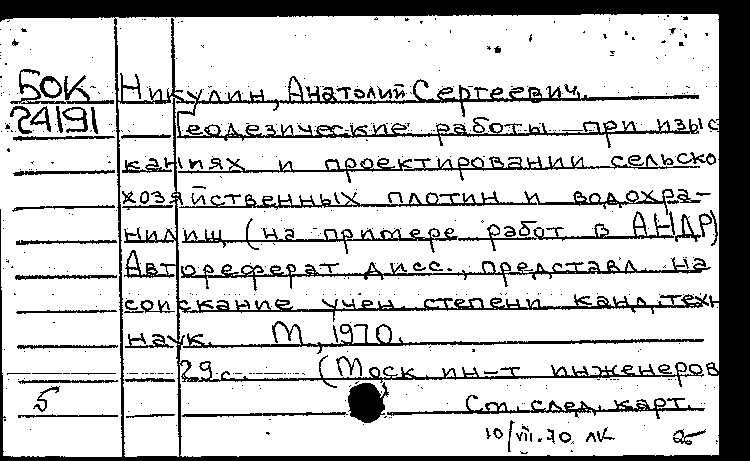 БОК Никулин, Анатолий Сергеевич.
24191 Геодезические работы при изыс
каниях и проектировании сельско
хозяйственных плотин и водохра-
нилищ (на примере работ в АНДР)
Автореферат дисс., представл на
соискание учен степени канд. техн
наук. М., 1970.
29 с. (Моск ин-т инженеров
5 См. след. карт.
10/VII.70 ЛК